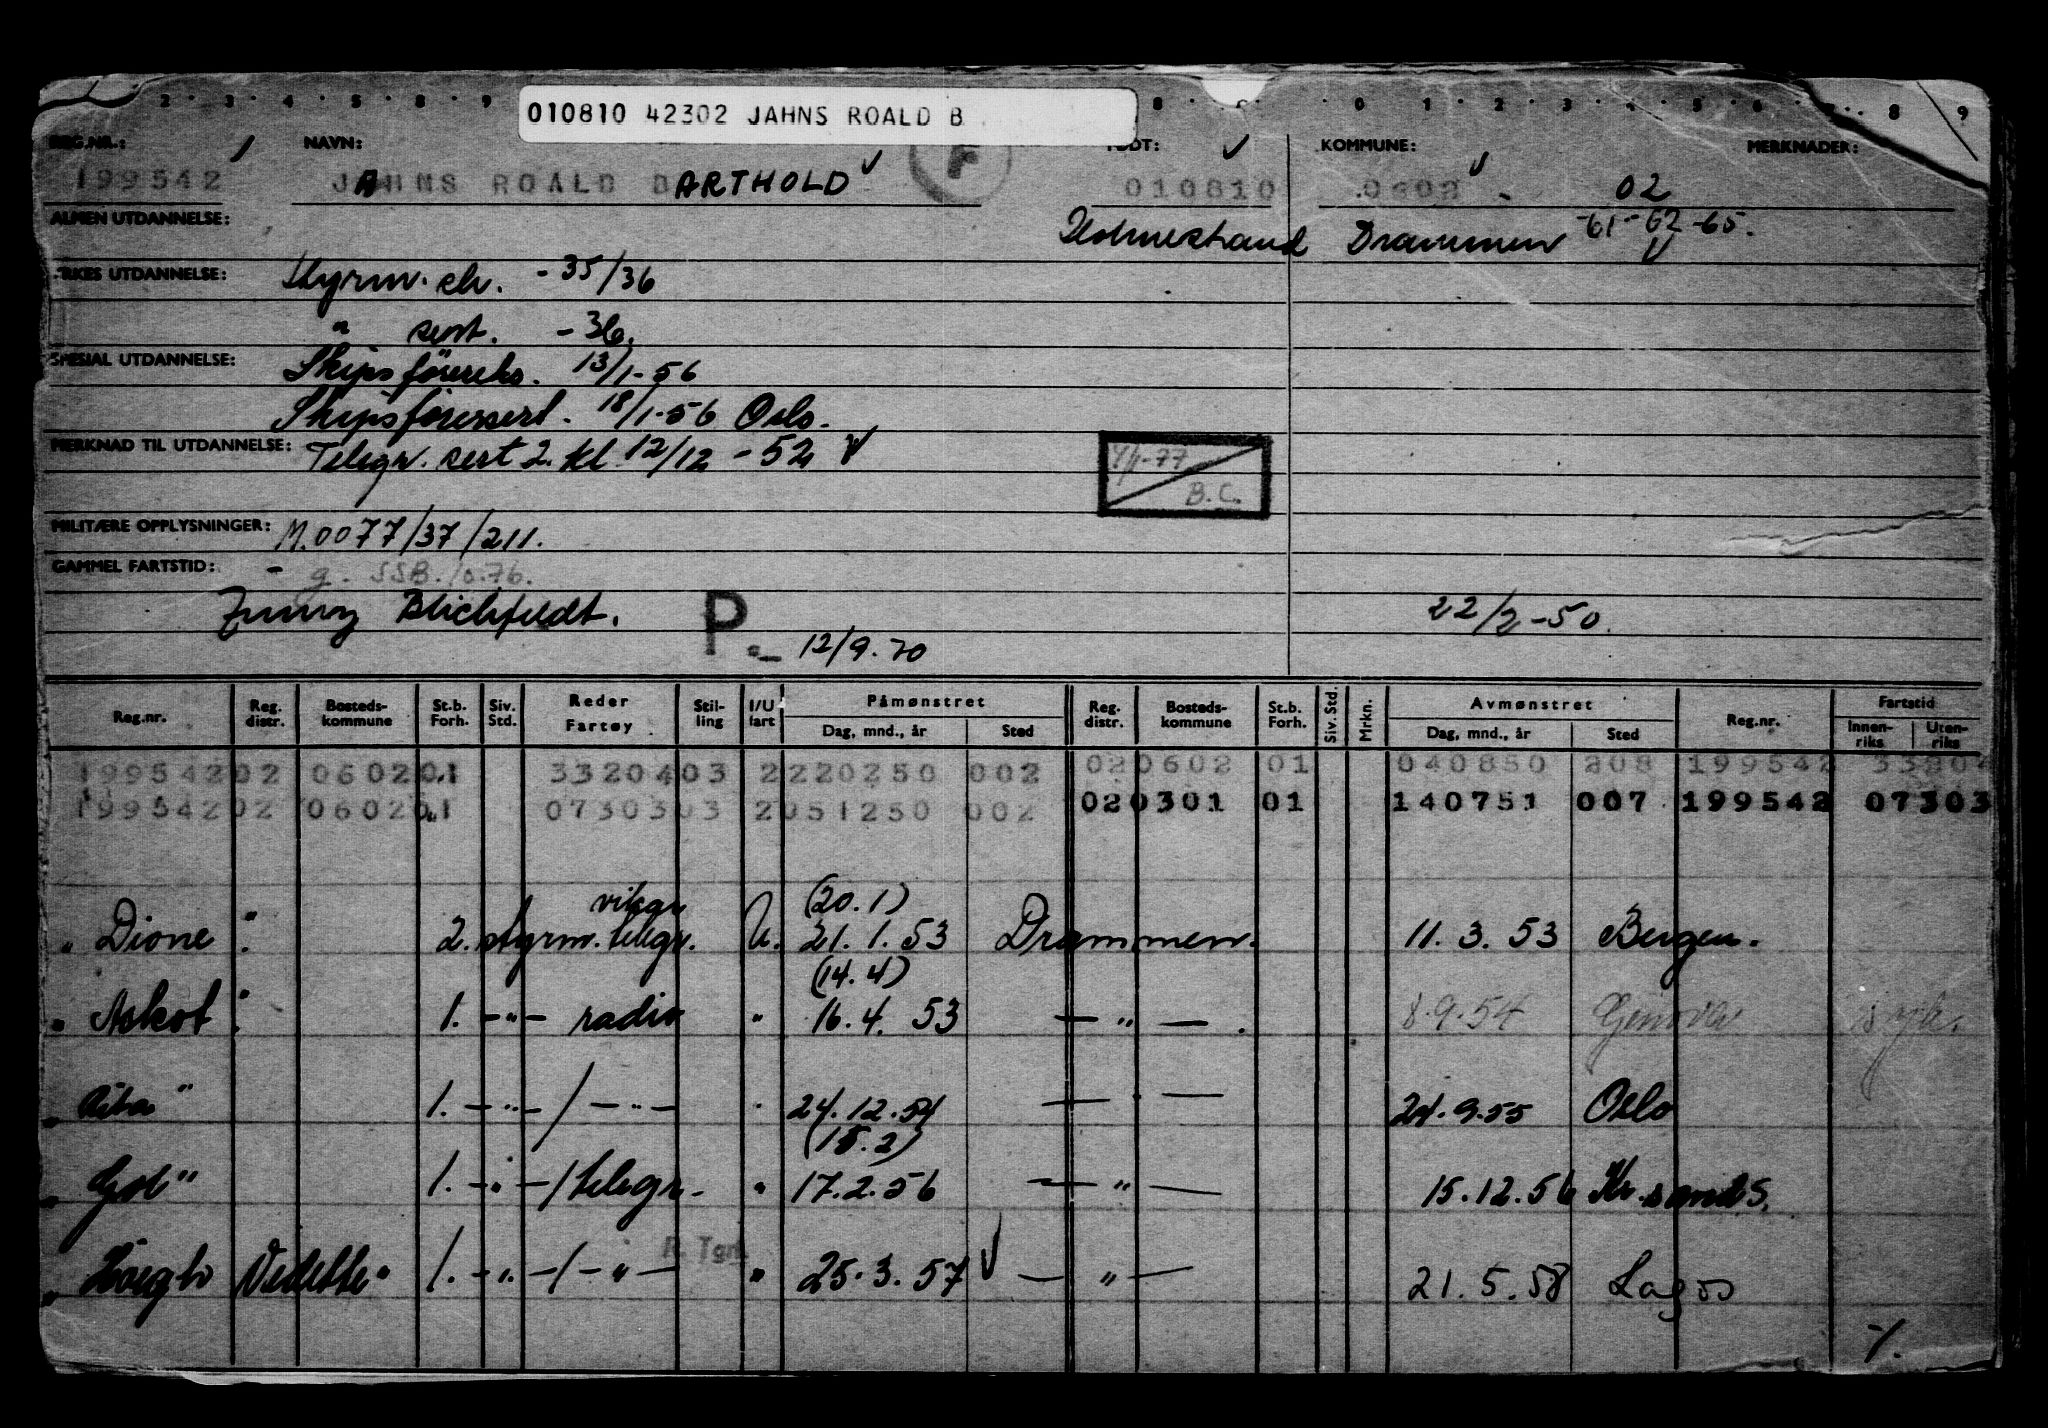 010810 42302 JAHNS ROALD B
REG.NR.: NAVN: FØDT: KOMMUNE: MERKNADER:
199542 JAHNS ROALD BARTHOLD 010810 0602 02
F
ALMEN UTDANNELSE: Holmestrand Drammen -61-62-65.
YRKES UTDANNELSE: Styrm. ek. -35/36
" sert. -36.
SPESIAL UTDANNELSE: Skipsføreeks. 13/1-56
Skipsføresert. 18/1-56 Oslo.
MERKNAD TIL UTDANNELSE: Telegr. sert 2. kl 12/12-52
B.C.
MILITÆRE OPPLYSNINGER: M.0077/37/211.
GAMMEL FARTSTID: - g. SSB. 10.76.
Blichfeldt. P 22/2-50.
12/9.70
Reg.nr. Reg. distr. Bosteds-kommune St.b. Forh. Siv. Std. Reder Fartøy Stil-ling I/U fart Påmønstret Dag, mnd., år Sted Reg. distr. Bosteds-kommune St.b. Forh. Siv. Std. Mrkn. Avmønstret Dag, mnd., år Sted Reg.nr. Fartstid Innen-riks Uten-riks
199542 02 0602 01 33204 03 2 220250 002 02 0602 01 040850 208 199542 33204
199542 02 0602 01 07303 03 2 051250 002 02 0301 01 140751 007 199542 07303
(20.1)
" Dione " 2. styrm. telegr. U. 21.1.53 Drammen. 11.3.53 Bergen.
(14.4)
" Askot " 1. -"- radio " 16.4.53 -"- . 8.9.54 Genova
" Rita " 1. -"- / -"- " 24.12.54 -"- 24.9.55 Oslo
(15.2)
" Gol " 1. -"- / telegr. " 17.2.56 -"- 15.12.56 Kr.sand S.
R. Tgr.
" Höegh Vedette " 1. -"- / -"- " 25.3.57 -"- 21.5.58 Lagos